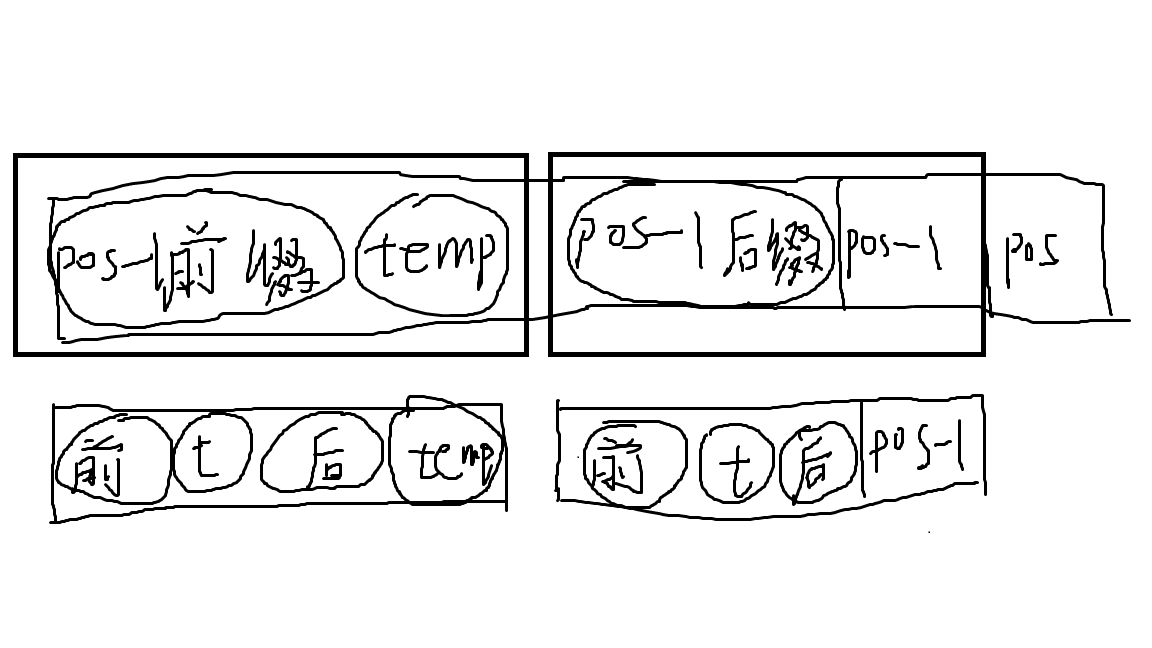 pos-1前缀 temp pos-1后缀 pos-1 pos
前 t 后 temp 前 t 后 pos-1